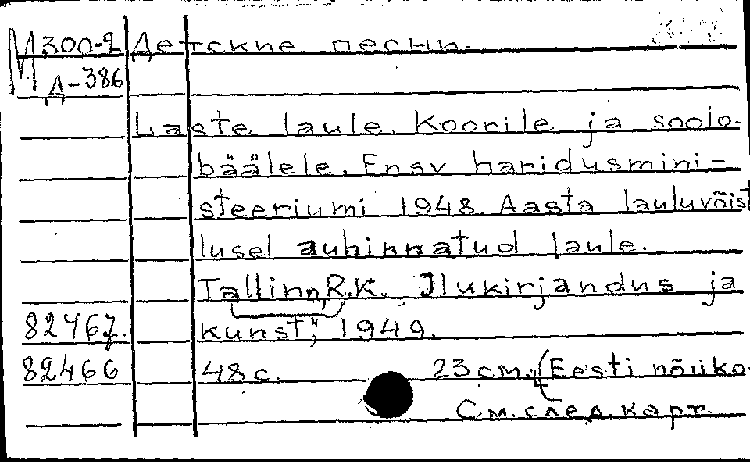 М300-2 Детские песни.
Д-386
Laste laule. Koorile ja soolo-
häälele. Ensv haridusmini-
steeriumi 1948. Aasta lauluvõist
lusel auhinnatud laule.
Tallinn, R.K. „Ilukirjandus ja
82467. kunst”, 1949.
82466 48 с. 23 см. (Eesti nõuko-
См. след. карт.